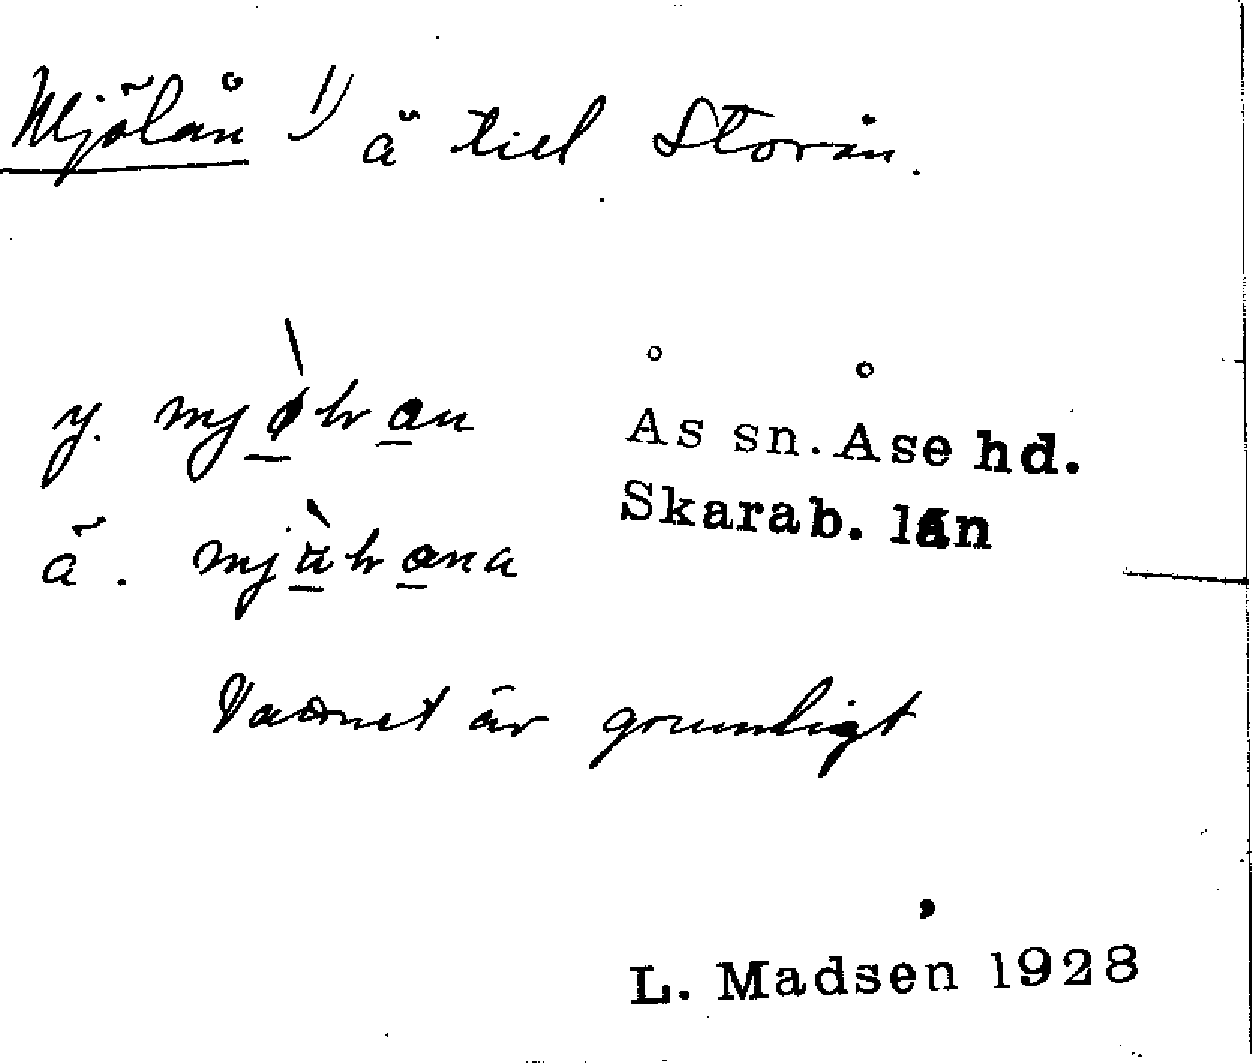 Mjölån 1) å till Storån.
y. mjölran
Ås sn. Åse hd.
Skarab. län
ä.
Vattnet är grumligt
L. Madsen 1928